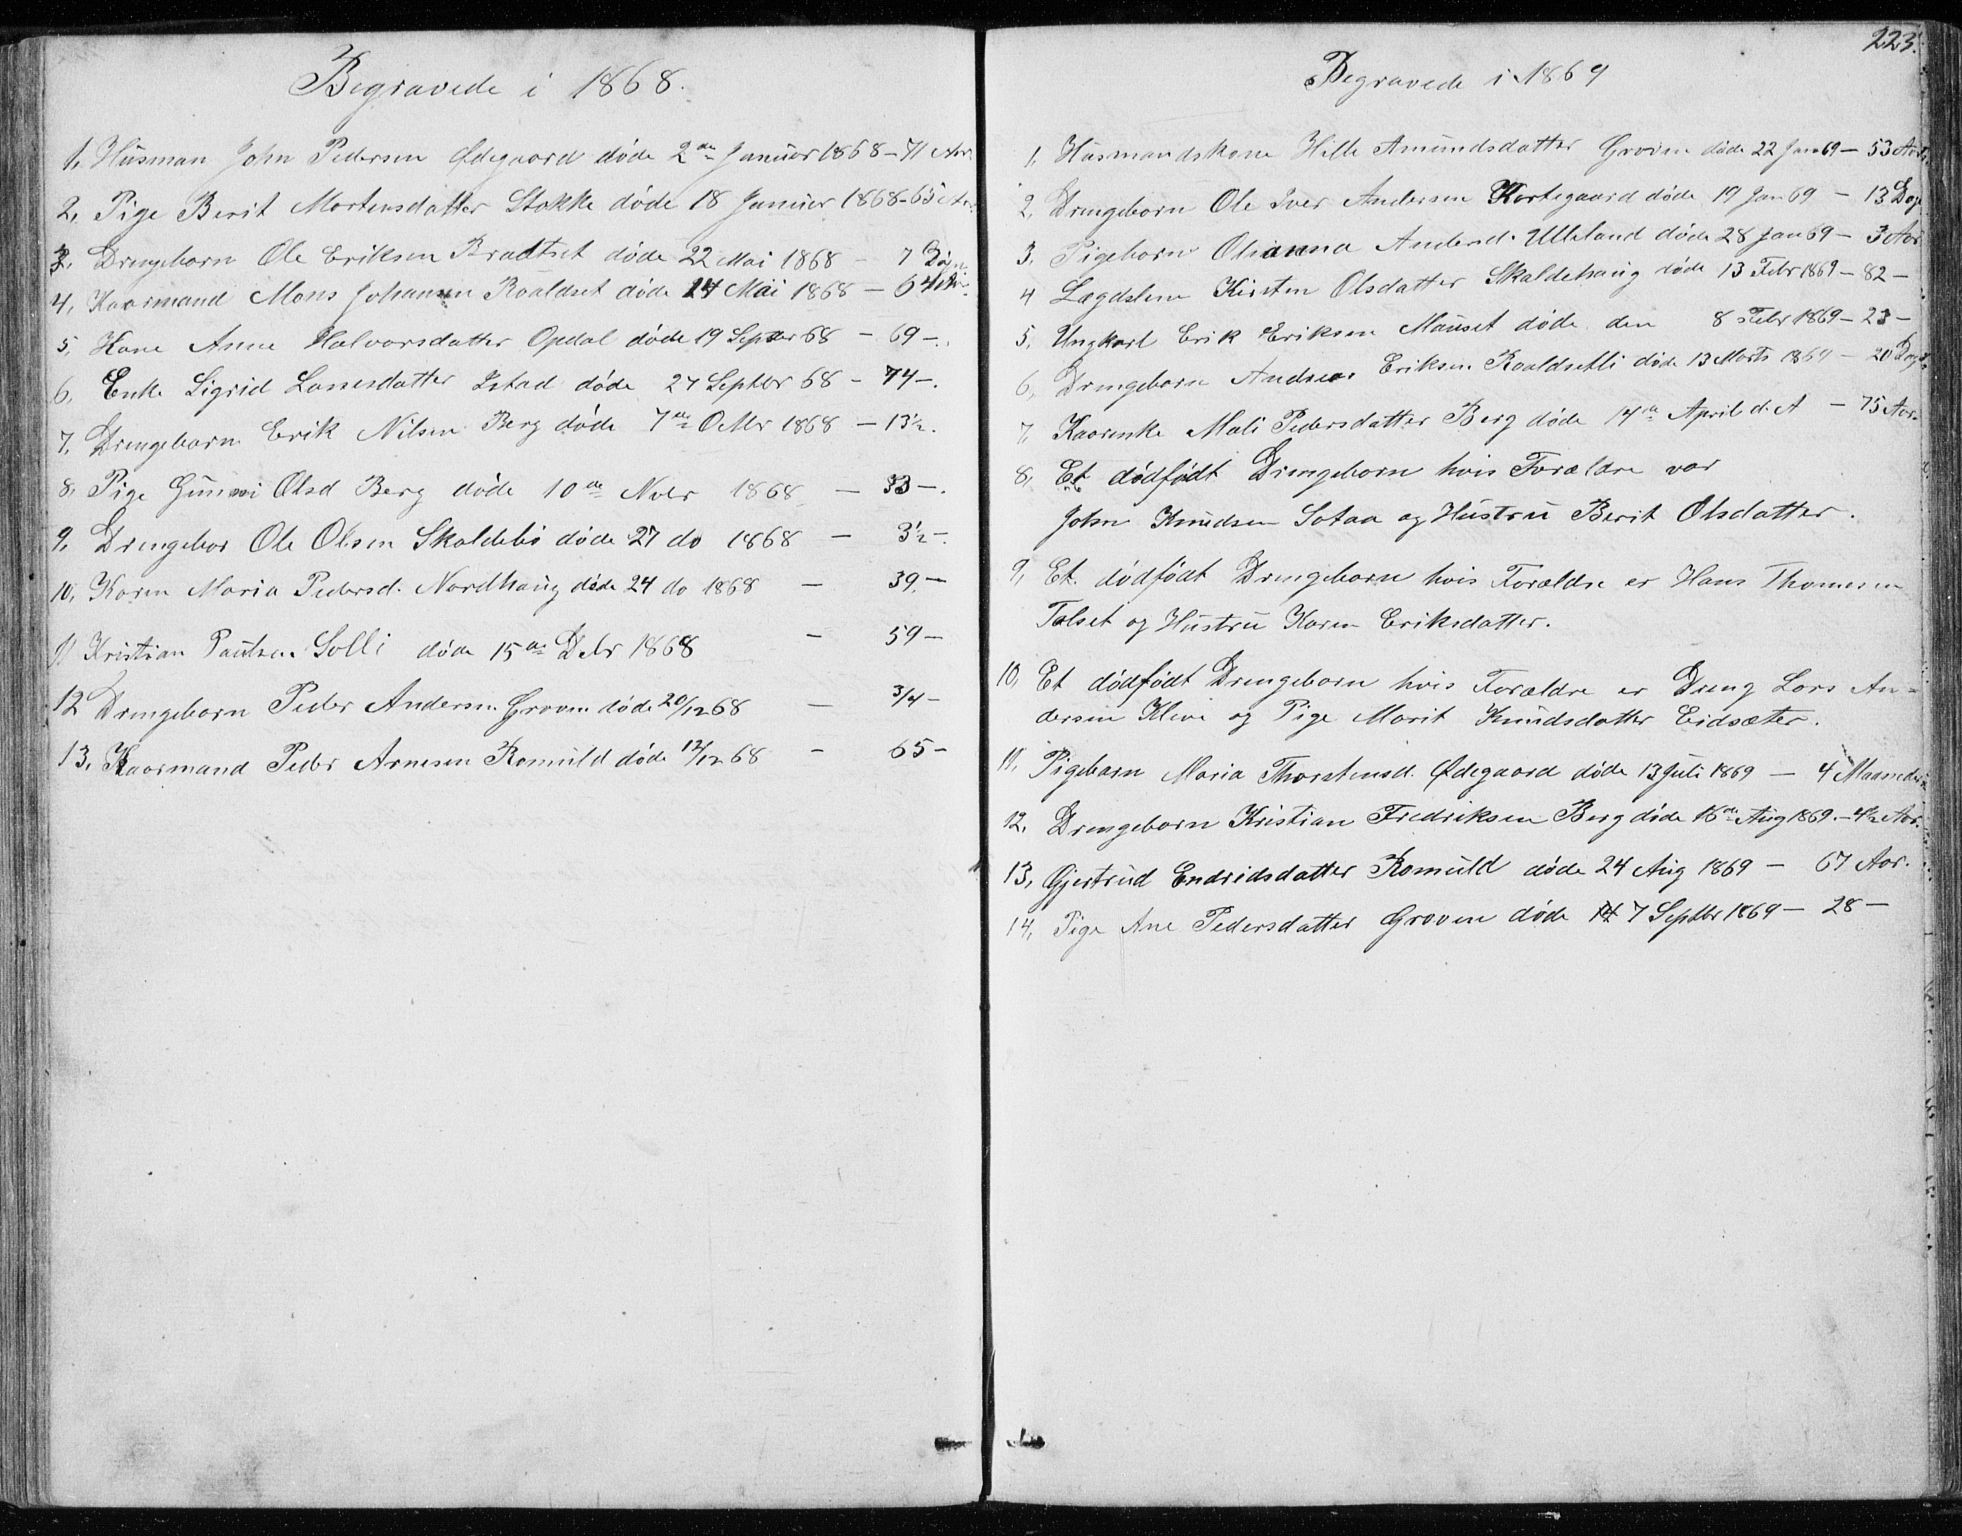 Begravede i 1868.
1, Husman John Pedersen Ødegaard døde 2de Januar 1868 - 71 Aar
2, Pige Berit Mortensdatter Stokke døde 18 Januar 1868 - 65 Aar
3, Drengebarn Ole Eriksen Bradtset døde 22 Mai 1868 - 7 Dage
4, Kaarmand Mons Johansen Roaldset døde 14 Mai 1868 - 64 Aar
5, Kone Anne Halvorsdatter Opdal døde 19 Septbr 68 - 69 -
6, Enke Sigrid Larsesdatter Istad døde 27 Septbr 68 - 74 -.
7, Drengebarn Erik Nilsen Berg døde 7de Octbr 1868 - 13½.
8, Pige Gunnei Olsd Berg døde 10de Nvbr 1868 - 33 -.
9, Drengebar Ole Olsen Skaldebø døde 27 do 1868 - 3½ -.
10, Karen Maria Pedersd. Nordhaug døde 24 do 1868 - 39, -
11 Kristian Paulsen Solli døde 15de Debr 1868 - 59 -
12 Drengebarn Peder Andersen Groven døde 20/12 68 - 3/4 -
13, Kaarmand Peder Arnesen Romuld døde 12/12 68 - 65 -
223.
Begravede i 1869
1, Husmandskone Hille Amundsdatter Groven døde 22 Jan 69 - 53 Aar
2, Drengebarn Ole Iver Andersen Kortegaard døde 19 Jan 69 - 13 Dage
3, Pigebarn Olianna Andersd. Ulleland døde 28 Jan 69 - 3 Aar
4 Lægdslem Kirsten Olsdatter Skaldehaug døde 13 Febr 1869 - 82 -
5, Ungkarl Erik Eriksen Mauset døde den 8 Febr 1869 - 23 -
6, Drengebarn Andreas Eriksen Roaldsetli døde 13 Marts 1869 - 20 Dage
7, Kaarenke Mali Pedersdatter Berg døde 14de April d. A - 75 Aar.
8, Et dødfødt Drengebarn hvis Forældre var
John Knudsen Sotaa og Hustru Berit Olsdatter.
9, Et dødfødt Drengebarn hvis Forældre er Hans Thomesen
Talset og Hustru Karen Eriksdatter.
10, Et dødfødt Drengebarn hvis Forældre er Dreng Lars An-
dersen Kleve og Pige Marit Knudsdatter Eidsæter.
11, Pigebarn Maria Thorstensd. Ødegaard døde 13 Juli 1869 - 4 Maaneder
12, Drengebarn Kristian Fredriksen Berg døde 16de Aug 1869. - 4½ Aar.
13, Gjertrud Endridsdatter Romuld døde 24 Aug 1869 - 67 Aar.
14, Pige Ane Pedersdatter Groven døde 14 7 Septbr 1869 - 28 -